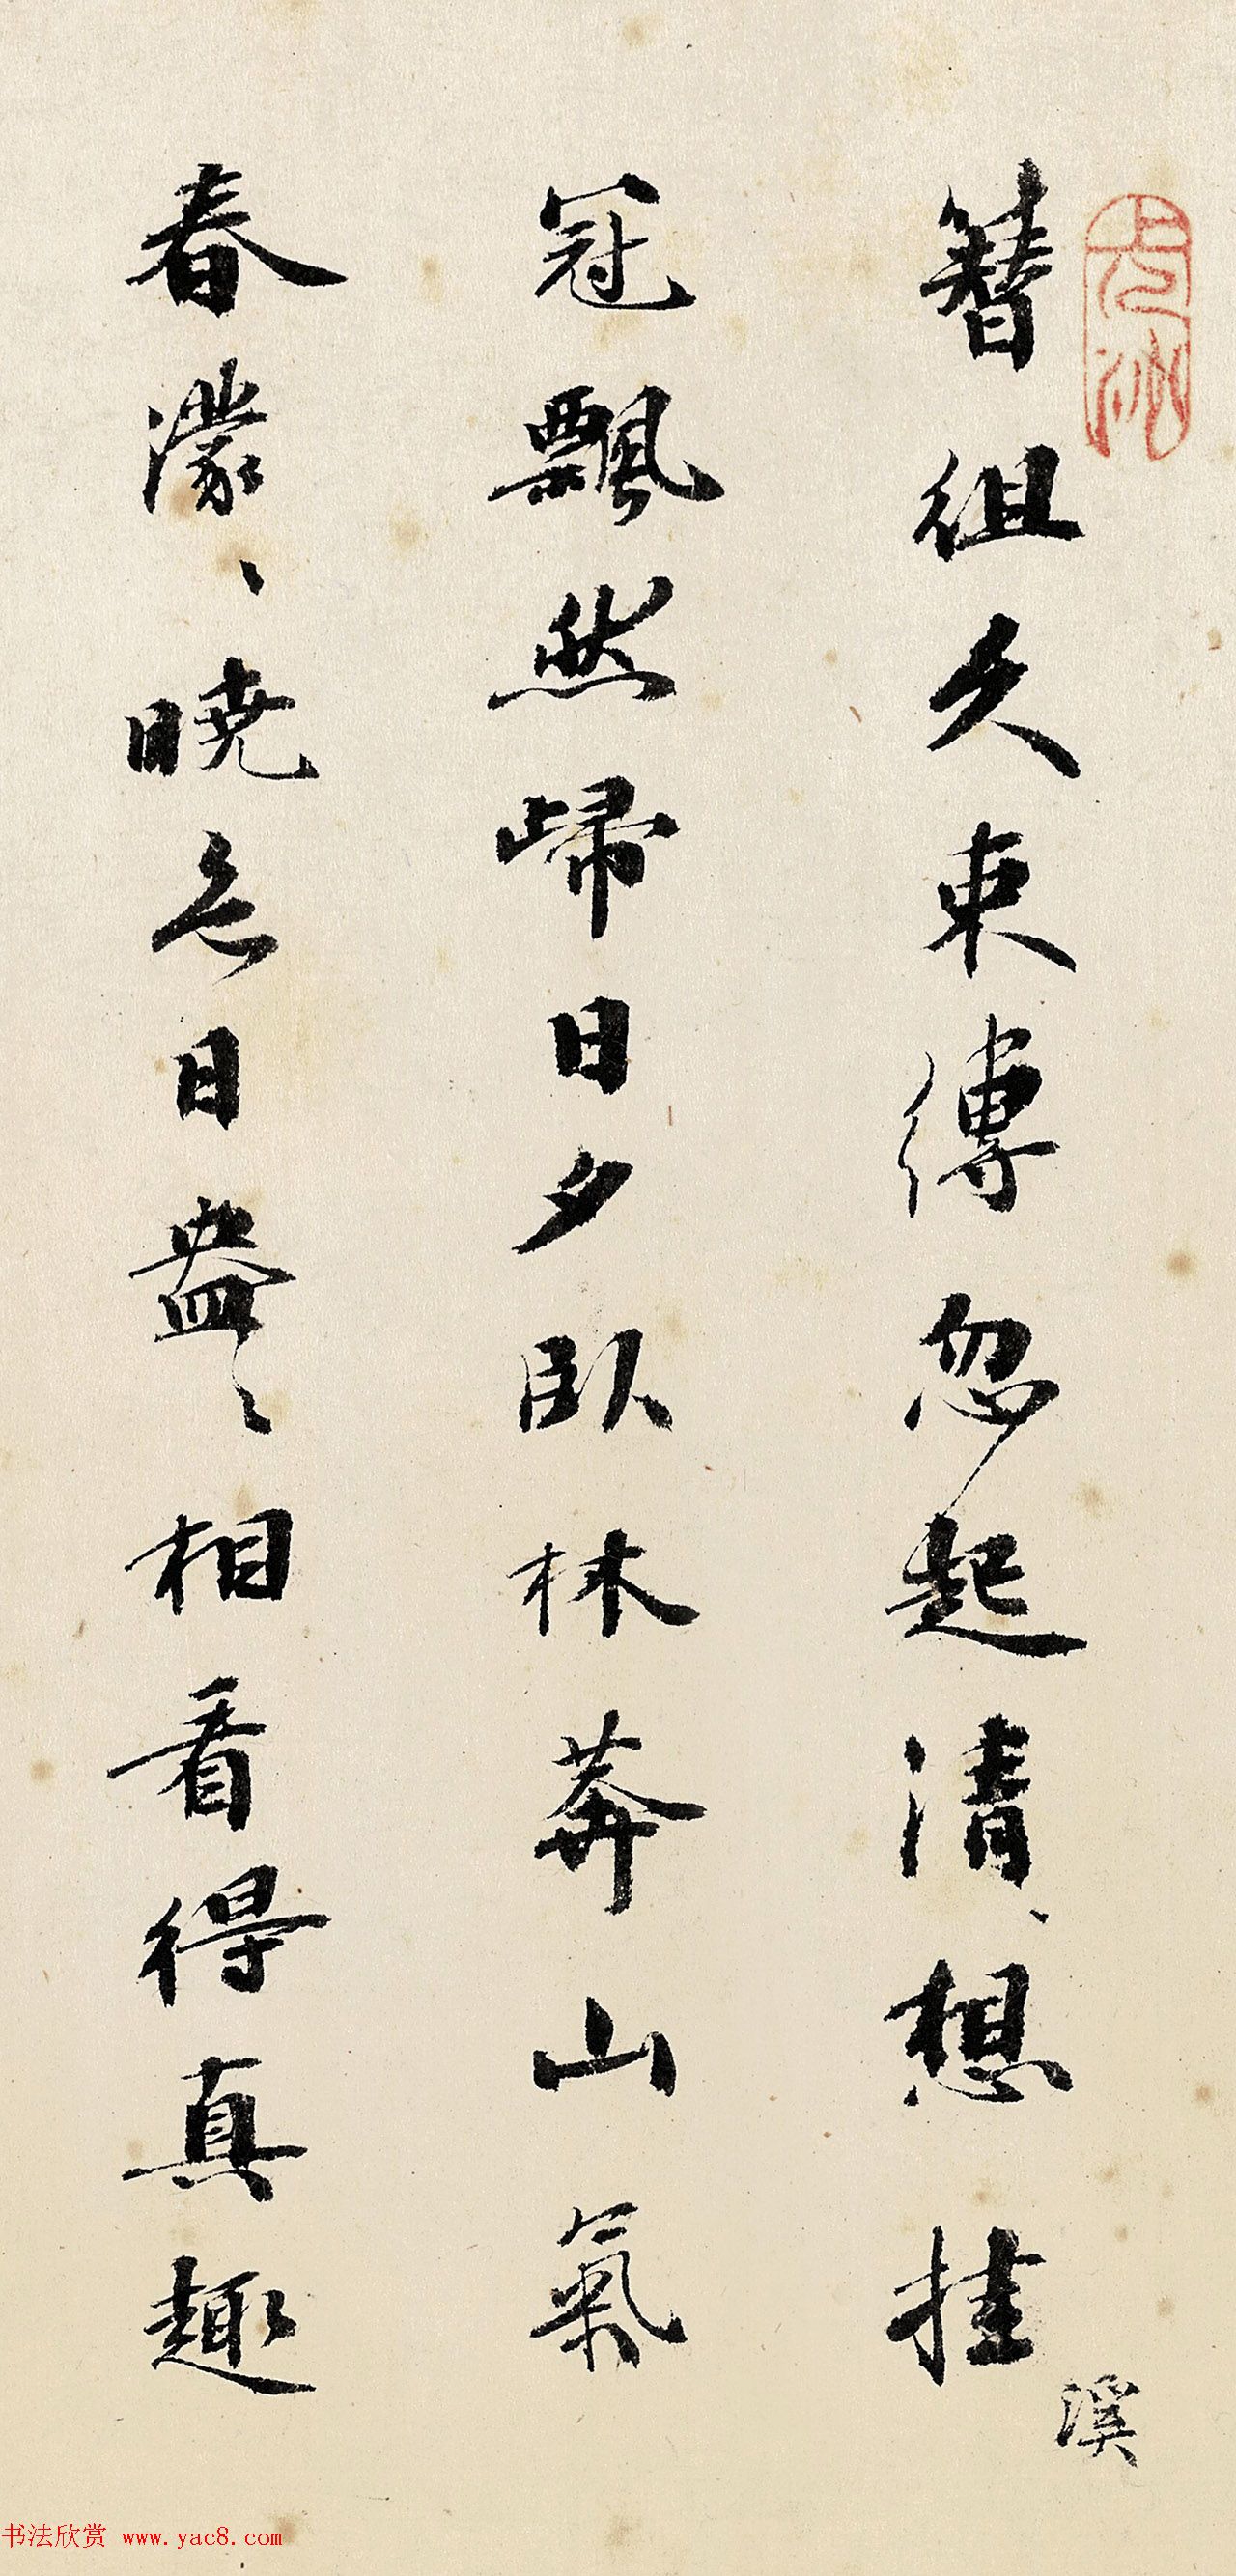 簪組久束縛忽起清、想挂
溪
冠飄然歸日夕臥林莽山氣
春濛、曉色日盎、相看得真趣
书法欣赏 www.yac8.com